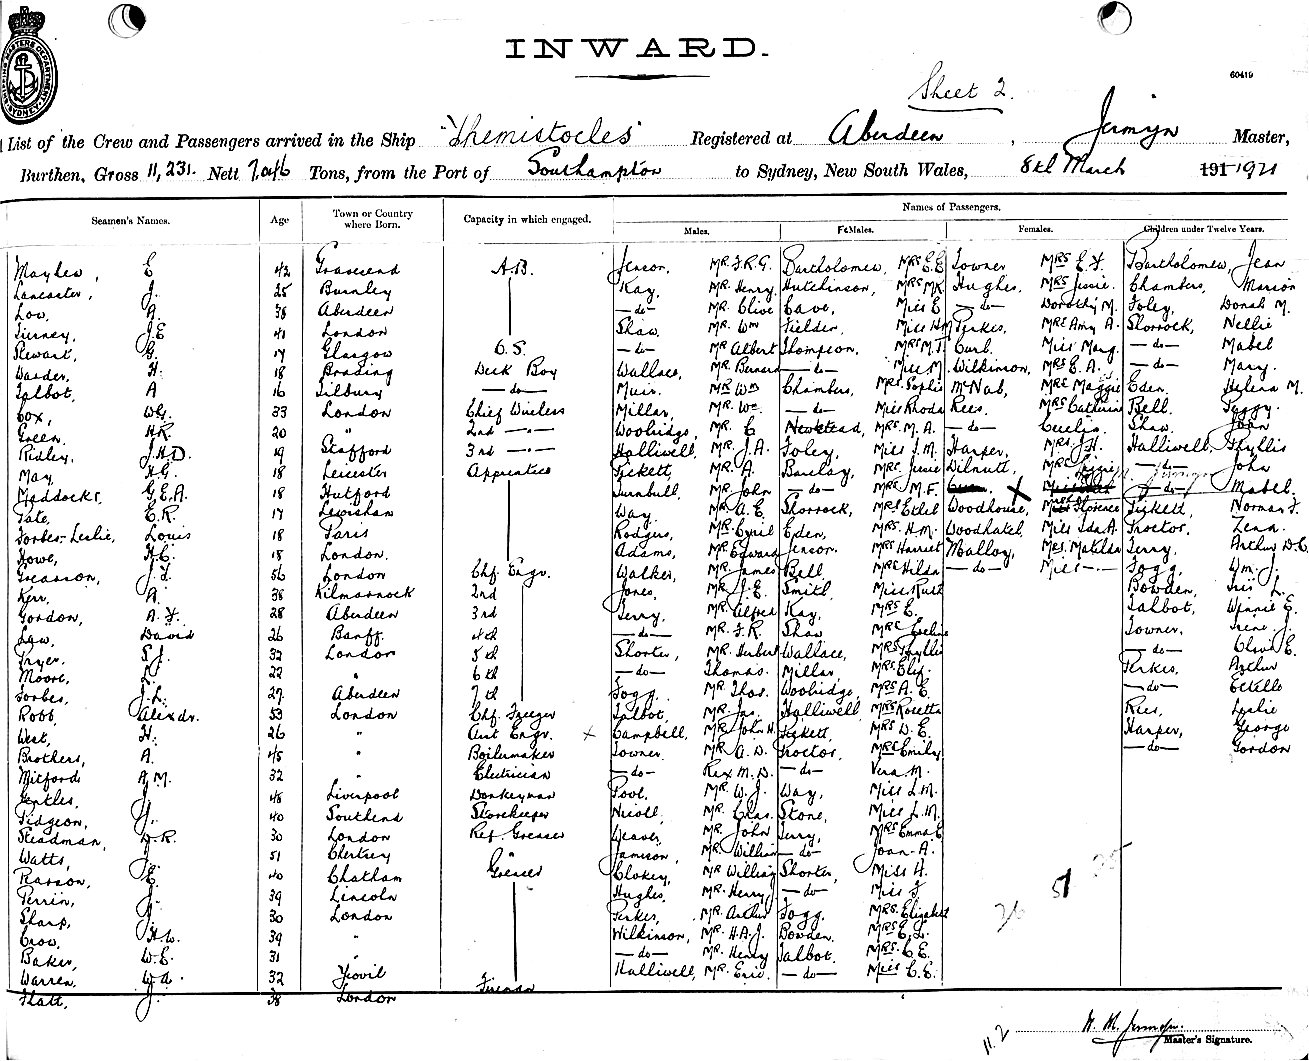 INWARD.
60419
Sheet 2.
List of the Crew and Passengers arrived in the Ship "Themistocles" Registered at Aberdeen, Jermyn Master,
Burthen, Gross 11,231. Nett 7,046 Tons, from the Port of Southampton to Sydney, New South Wales, 8th March 191 1921
Names of Passengers.
Seamen's Names. Age Town or Country where Born. Capacity in which engaged. Males. FeMales. Females. Children under Twelve Years.
Mayhew, E 42 Gravesend A.B. Jensor, MR. F.R.G. Bartholomew, MRS E.E Towner MRS E.F. Bartholomew, Jean
Lancaster, J. 25 Burnley Kay, MR. Henry Hutchinson, MRS MK Hughes, MRS Jessie. Chambers, Marion
Low, A. 38 Aberdeen —do— MR. Clive Cave, Miss E —do— Dorothy M. Foley, Donah M.
Tierney, J.E 41 London Shaw MR. Wm Fielder, Miss H.M Perkes, MRS Amy A. Shorrock, Nellie
Stewart, G. 17 Glasgow O.S. —do— MR Albert Thompson, MRS M.J. Curl. Miss Marg. —do— Mabel
Warder, H. 18 Brading Deck Boy Wallace, MR. Bernard —do— Miss M. Wilkinson, MRS E.A. —do— Mary.
Talbot, A 16 Tilbury —do— Muir. MR Wm Chambers, MRS. Sophie McNab, MRS Maggie Eden, Helena M.
Cox, W.G. 33 London Chief Wireless Millar, MR. Wm. —do— Miss Rhoda Rees, MRS Catherine Bell, Peggy.
Green, H.R. 20 " 2nd —"— Woolridge, MR. C Newstead, MRS. M.A. —do— Cecilia Shaw, John
Ridley, J.H.D. 19 Stafford 3rd —"— Halliwell, MR. J.A. Foley, Miss I.M. Harper, MRS. J.H. Halliwell, Phyllis
May, H.G. 18 Leicester Apprentice Pickett, MR. A. Barclay, MRS. Jessie Dilnutt, MRS Lizzie —do— John
Maddocks, G.E.A. 18 Hutford Turnbull, MR. John —do— MRS. M.F. X —do— Mabel.
Tate, E.R. 17 Lewisham Way, MR. A.E. Shorrock, MRS Ethel Woodhouse, Miss Florence Pickett, Norman F.
Forbes-Leslie, Louis 18 Paris Rodgers, MR. Cyril Eden, MRS. H.M. Woodhatch, Miss Ida A. Proctor, Zena.
Howe, H.C. 18 London. Adams, MR. Edward Jensor, MRS Harriet Malloy, Mrs. Matilda Terry, Arthur D.C.
Greason, J.T. 56 London Chf. Engr. Walker, MR. James Bell MRS Hilda —do— Miss — Fogg, Wm. J.
Kerr, A. 38 Kilmarnock 2nd Jones, MR. J.E. Smith, Miss Ruth Bowden, Iris L.
Gordon, A.F. 28 Aberdeen 3rd Terry, MR. Alfred Kay, MRS E. Talbot, Winnie E.
Law, David 26 Banff. 4th —do— MR. F.R. Shaw MRS Eveline Towner, Irene J.
Fryer, S.J. 32 London 5th Shorter, MR. Herbert Wallace, MRS Phyllis —do— Olive E.
Moore, L. 22 " 6th —do— Thomas. Millar, MRS. Eliz. Perkes, Arthur
Forbes, J.L. 27 Aberdeen 7th Fogg. MR. Thos. Woolridge, MRS A.E. —do— Estelle
Robb, Alexdr. 53 London Chf. Freezer Talbot, MR. Jas. Halliwell MRS Rosetta Rees, Leslie
West, H. 26 " Asst Engr. x Campbell, MR. John H. Pickett, MRS D.E. Harper, George
Brothers, A. 45 " Boilermaker Towner. MR. A.D. Proctor, MRS Emily —do— Gordon
Mitford A.M. 32 " Electrician —do— Rex M.D. —do— Vera M.
Gentles, J. 48 Liverpool Donkeyman Pool, MR. W.J. Way, Miss I.M.
Pidgeon, J. 40 Southend Storekeeper Nicoll, MR. Chas. Stone, Miss L.M.
Steadman, W.R. 30 London Ref. Greaser Weaver MR. John Terry, MRS Emma E
Watts, J. 51 Chertsey Jamison, MR. William —do— Joan A.
Ranson, E. 40 Chatham Greaser Clokey, MR William Shorter, Miss H.
Perrin, J. 39 Lincoln Hughes, MR. Henry J —do— Miss J
Sharp, J. 30 London Perkes, MR. Arthur Fogg. MRS. Elizabeth 26 51 35
Crow, H.W. 39 " Wilkinson, MR. H.A.J. Bowden, MRS E.L.
Baker, W.E. 31 " —do— MR. Henry Talbot, MRS. C.E.
Warren, W.A. 32 Yeovil Halliwell, MR. Eric. —do— Miss C.E.
Flatt, J. 38 London Fireman
11.2
W. M. Jermyn.
Master's Signature.